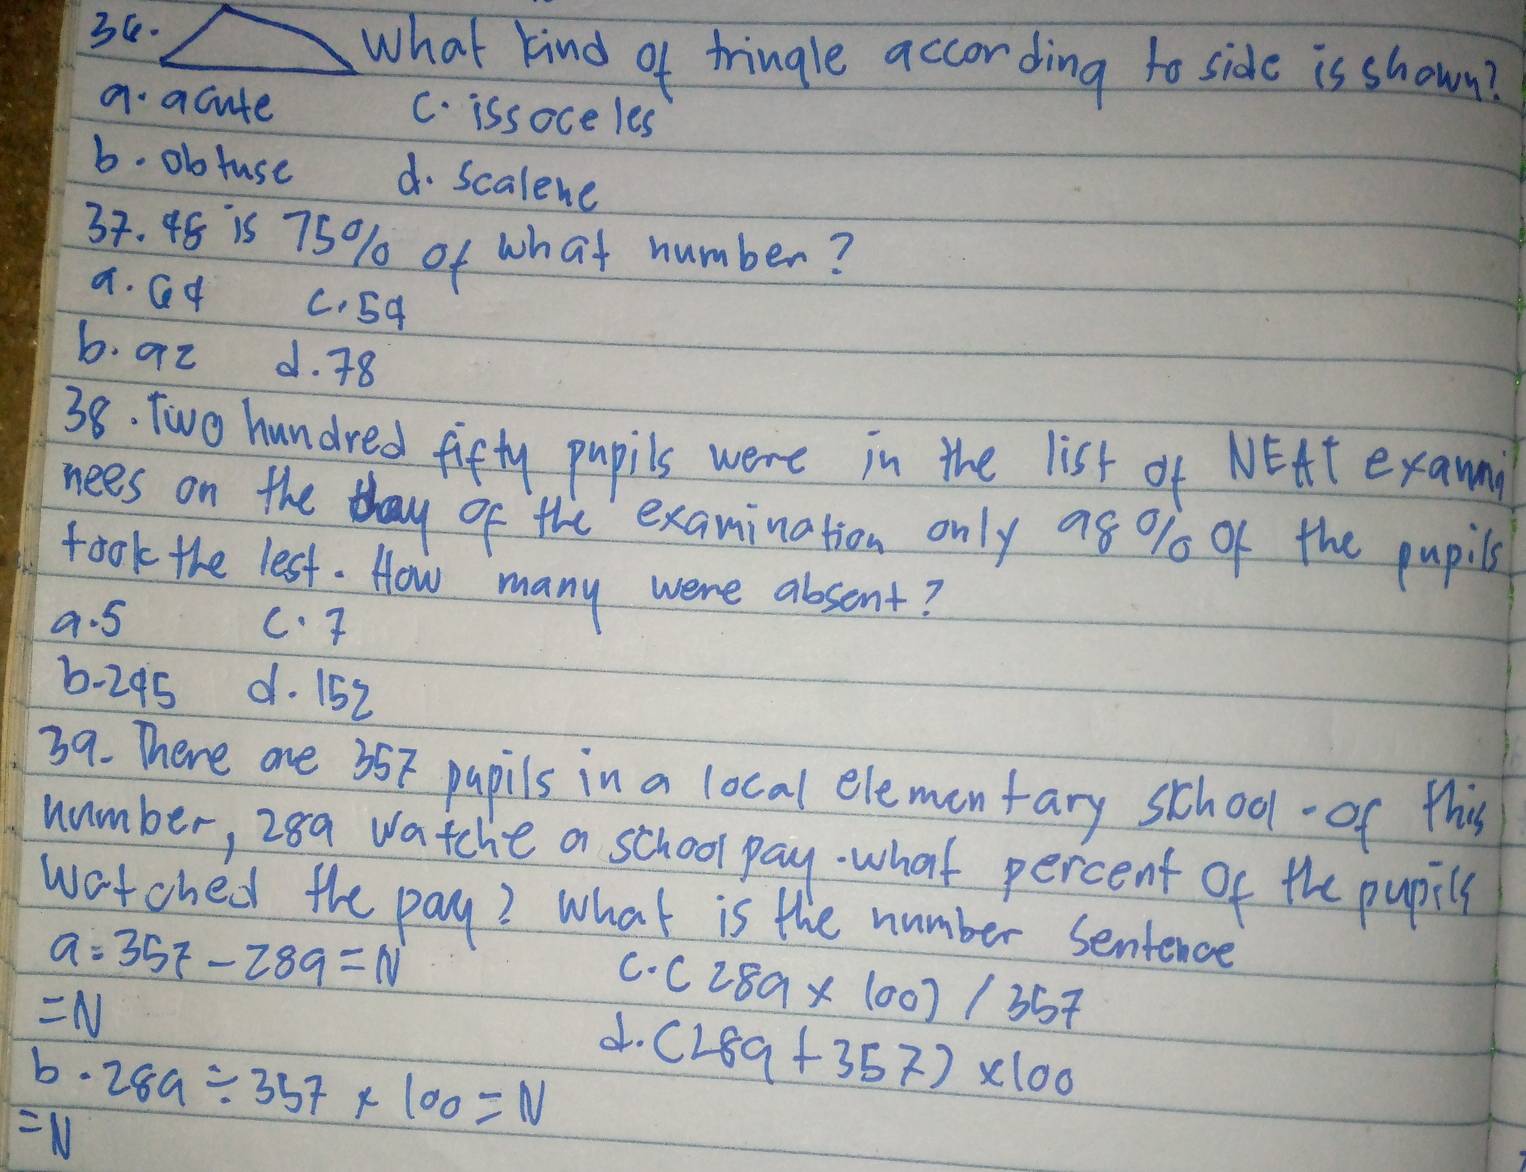 36. What kind of tringle according to side is shown?
a. acute c. issoceles
b. obtuse d. scalene
37. 48 is 75% of what number?
a. 64 c. 54
b. 92 d. 78
38. Two hundred fifty pupils were in the list of NEAT exanni
nees on the day of the examination only 98% of the pupils
took the lest. How many were absent?
a. 5 c. 7
b-245 d. 152
39- There are 357 pupils in a local elementary school - of this
number, 289 watche a school pay. what percent of the pupils
watched the pay? what is the number sentence
a = 357 - 289 = N c. (289 x 100) / 357
= N d. (289 + 357) x 100
b. 289 ÷ 357 x 100 = N
= N